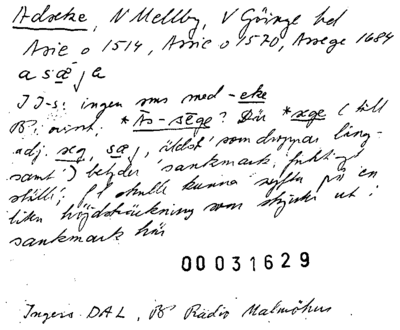 Adseke, N Mellby, V Göinge hd
Asie o 1514, Assie o 1570, Assege 1684
a sæj a
JJ-s: ingen sms med -eke
*Ås-sēge? Där *sege (till
adj. seg, sæj, 'som droppar lång-
samt') betyder 'sankmark, fuktigt
ställe'; skulle kunna syfta på en
liten höjdsträckning som skjuter ut i
sankmark här
00031629
Ingers DAL, Radio Malmöhus